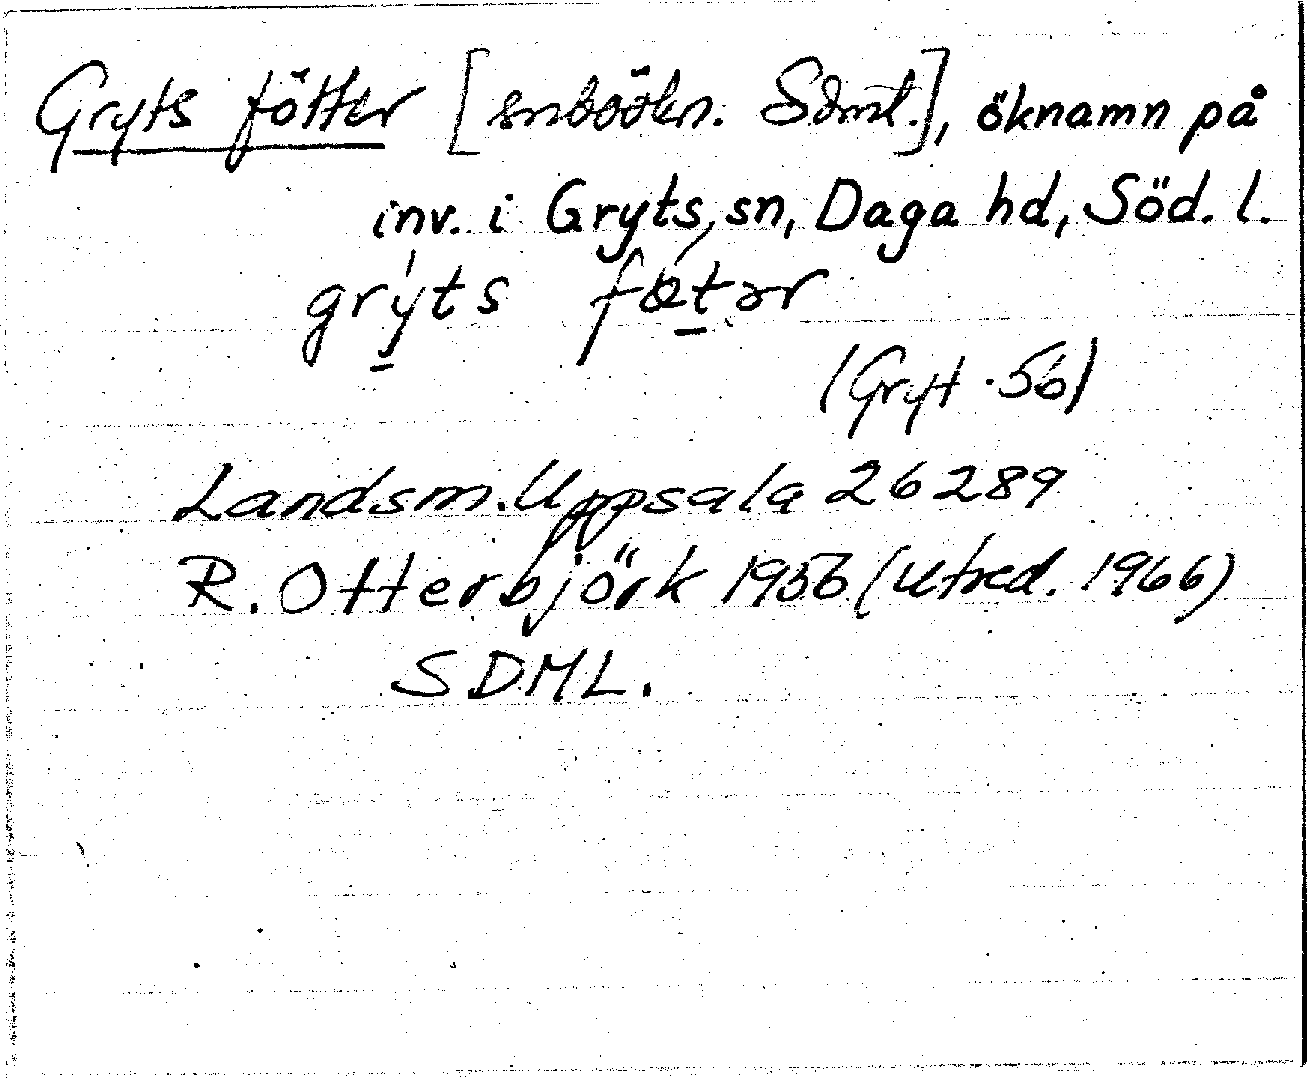 Gryts fötter [snboökn. Sdml.], öknamn på
inv. i Gryts sn, Daga hd, Söd. l.
grýts fœ́tər
(Gryt. 56)
Landsm. Uppsala 26289
R. Otterbjörk 1956 (Utred. 1966)
SDML.